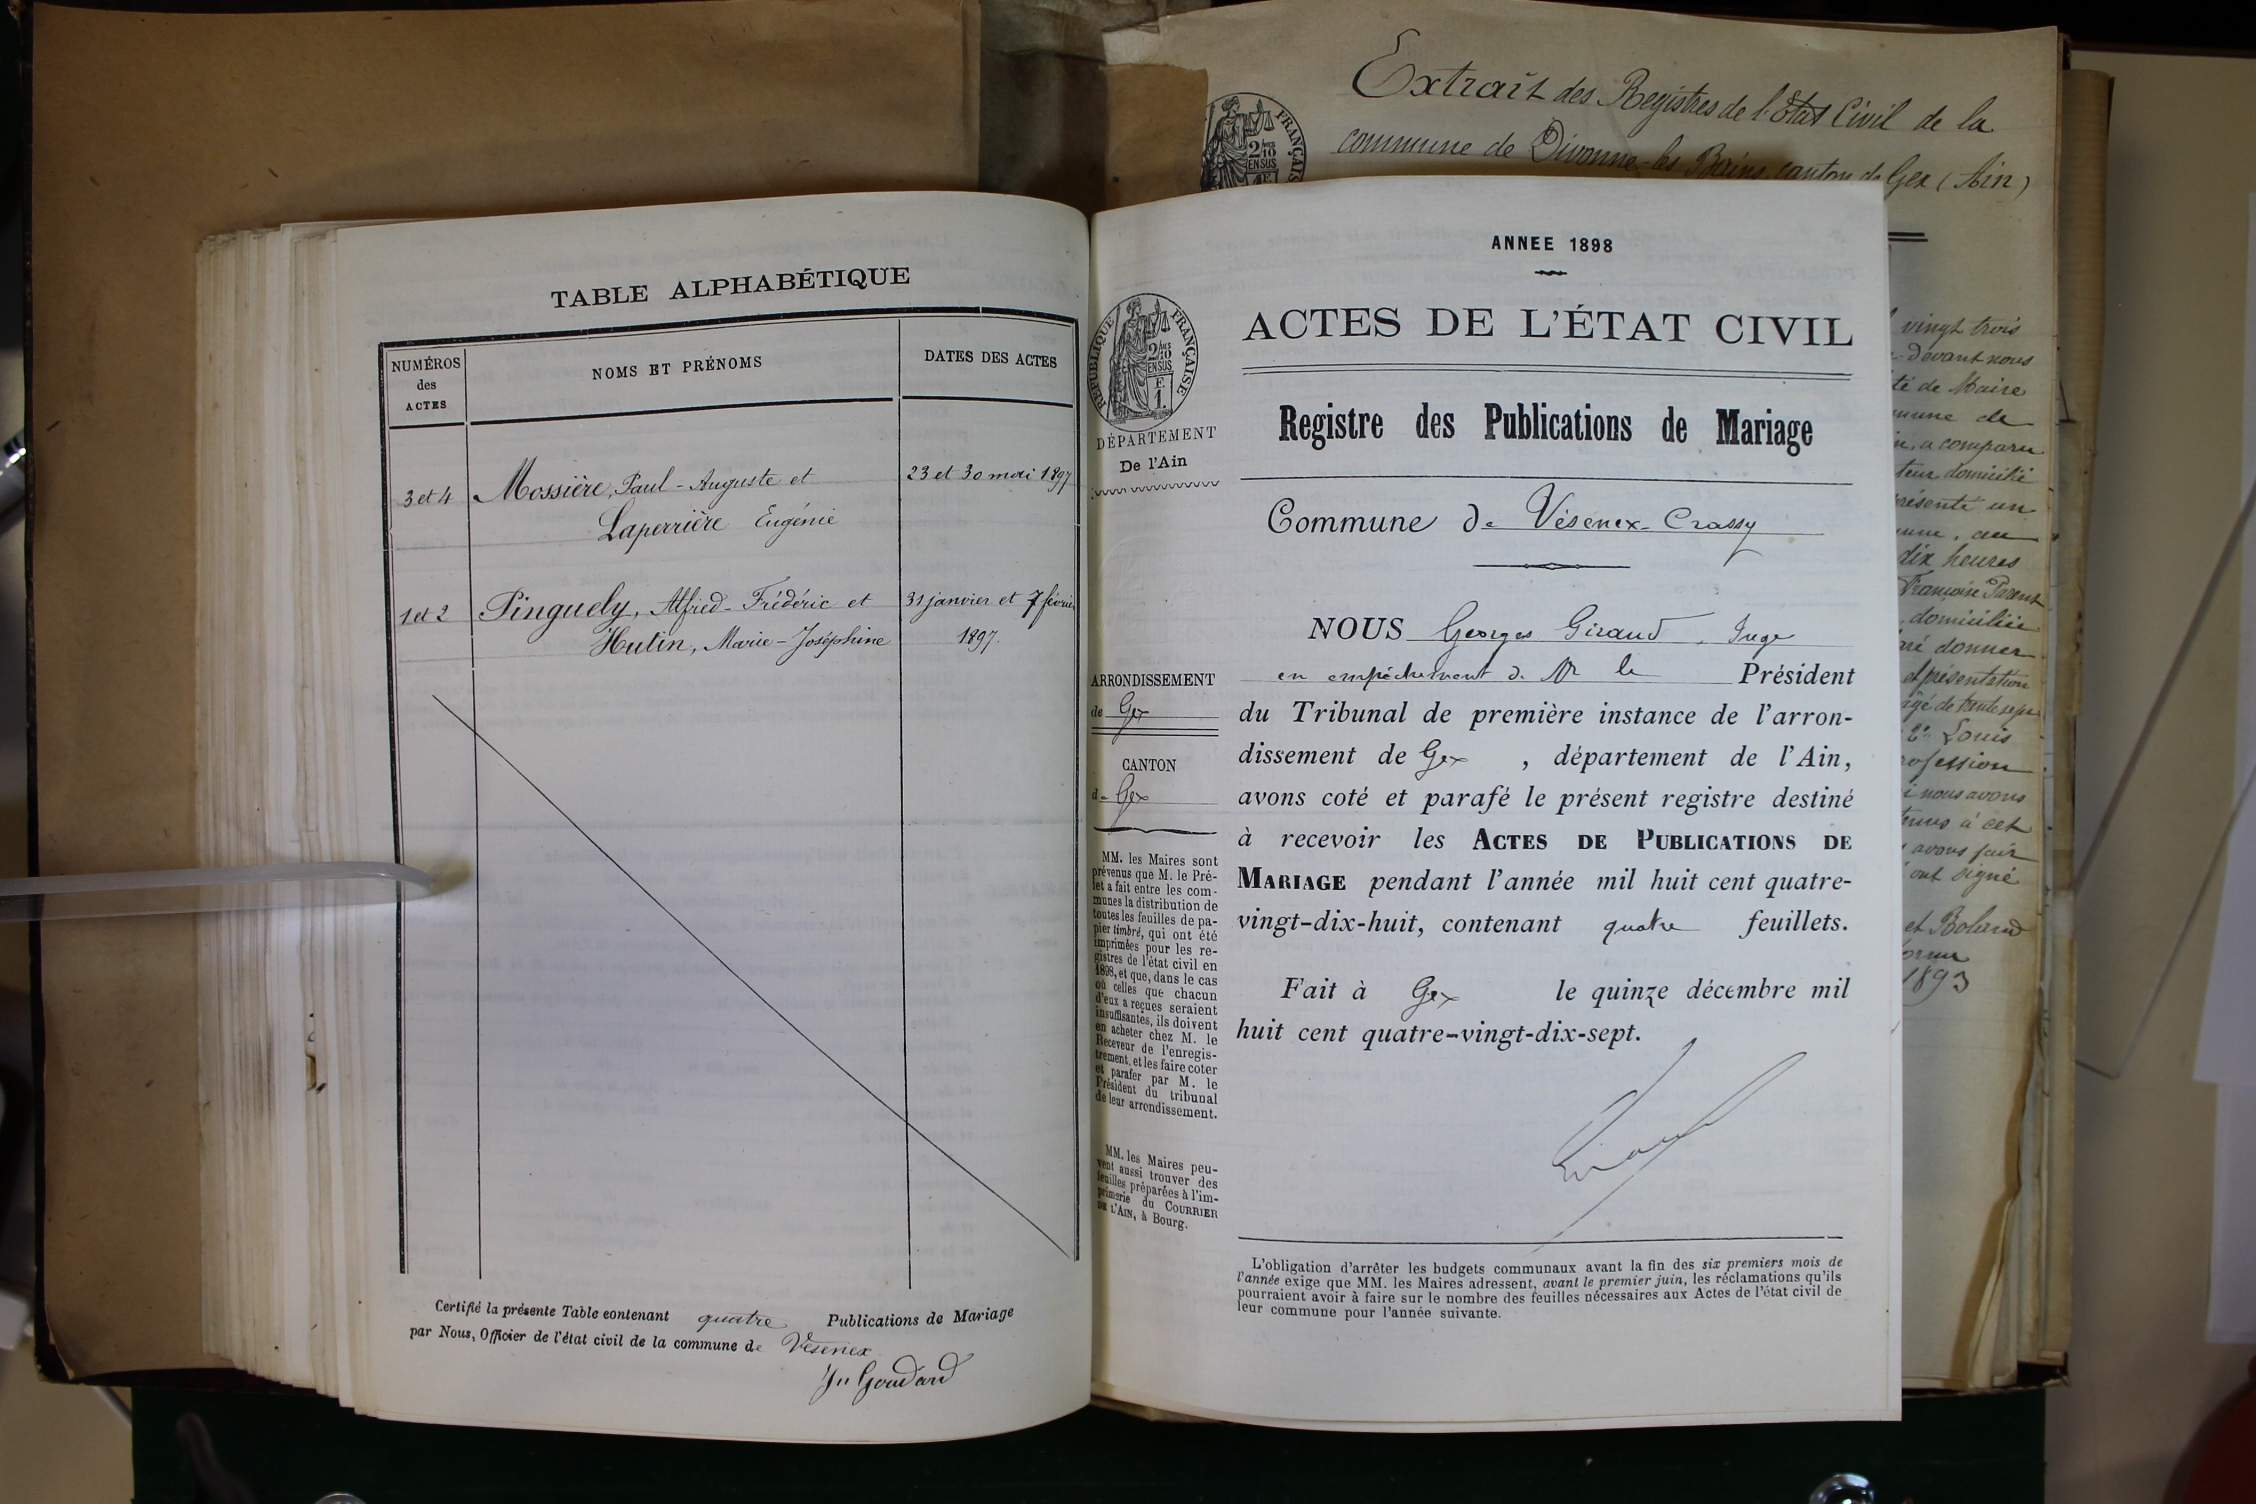 TABLE ALPHABÉTIQUE
NUMÉROS
des
ACTES
NOMS ET PRÉNOMS
DATES DES ACTES
3 et 4
Mossière, Paul-Auguste et
Laperrière Eugénie
23 et 30 mai 1897
1 et 2
Pinguely, Alfred-Frédéric et
Hutin, Marie-Joséphine
31 janvier et 7 février
1897.
Certifié la présente Table contenant quatre Publications de Mariage
par Nous, Officier de l'état civil de la commune de Vésenex
Goudard
Extrait des Registres de l'Etat Civil de la
commune de Divonne-les Bains, canton de Gex (Ain)
FRANÇAIS
2/10
EN SUS
ANNEE 1898
RÉPUBLIQUE FRANÇAISE
2/10
EN SUS
F.
1.
DÉPARTEMENT
De l'Ain
ARRONDISSEMENT
de Gex
CANTON
de Gex
MM. les Maires sont
prévenus que M. le Pré-
fet a fait entre les com-
munes la distribution de
toutes les feuilles de pa-
pier timbré, qui ont été
imprimées pour les re-
gistres de l'état civil en
1898, et que, dans le cas
où celles que chacun
d'eux a reçues seraient
insuffisantes, ils doivent
en acheter chez M. le
Receveur de l'enregis-
trement, et les faire coter
et parafer par M. le
Président du tribunal
de leur arrondissement.
MM. les Maires peu-
vent aussi trouver des
feuilles préparées à l'im-
primerie du COURRIER
DE L'AIN, à Bourg.
ACTES DE L'ÉTAT CIVIL
Registre des Publications de Mariage
Commune de Vésenex-Crassy
NOUS Georges Giraud, Juge
en empêchement de Mr le Président
du Tribunal de première instance de l'arron-
dissement de Gex , département de l'Ain,
avons coté et parafé le présent registre destiné
à recevoir les ACTES DE PUBLICATIONS DE
MARIAGE pendant l'année mil huit cent quatre-
vingt-dix-huit, contenant quatre feuillets.
Fait à Gex le quinze décembre mil
huit cent quatre-vingt-dix-sept.
L'obligation d'arrêter les budgets communaux avant la fin des six premiers mois de
l'année exige que MM. les Maires adressent, avant le premier juin, les réclamations qu'ils
pourraient avoir à faire sur le nombre des feuilles nécessaires aux Actes de l'état civil de
leur commune pour l'année suivante.
vingt trois
devant nous
té de Maire
mune de
in, a comparu
teur domicilié
présenté un
dix heures
Françoise Parent
, domiciliée
ré donner
et présentation
2° Louis
rofession
i nous avons
à cet
avons fait
ont signé
et Roland
1893